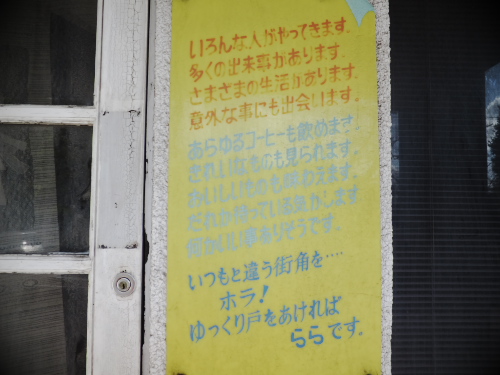 いろんな人がやってきます。
多くの出来事があります。
さまざまの生活があります。
意外な事にも出会います。
あらゆるコーヒーも飲めます。
きれいなものも見られます。
おいしいものも味わえます。
だれか待っている気がします
何かいい事ありそうです。
いつもと違う街角を‥‥
ホラ!
ゆっくり戸をあければ
ららです。